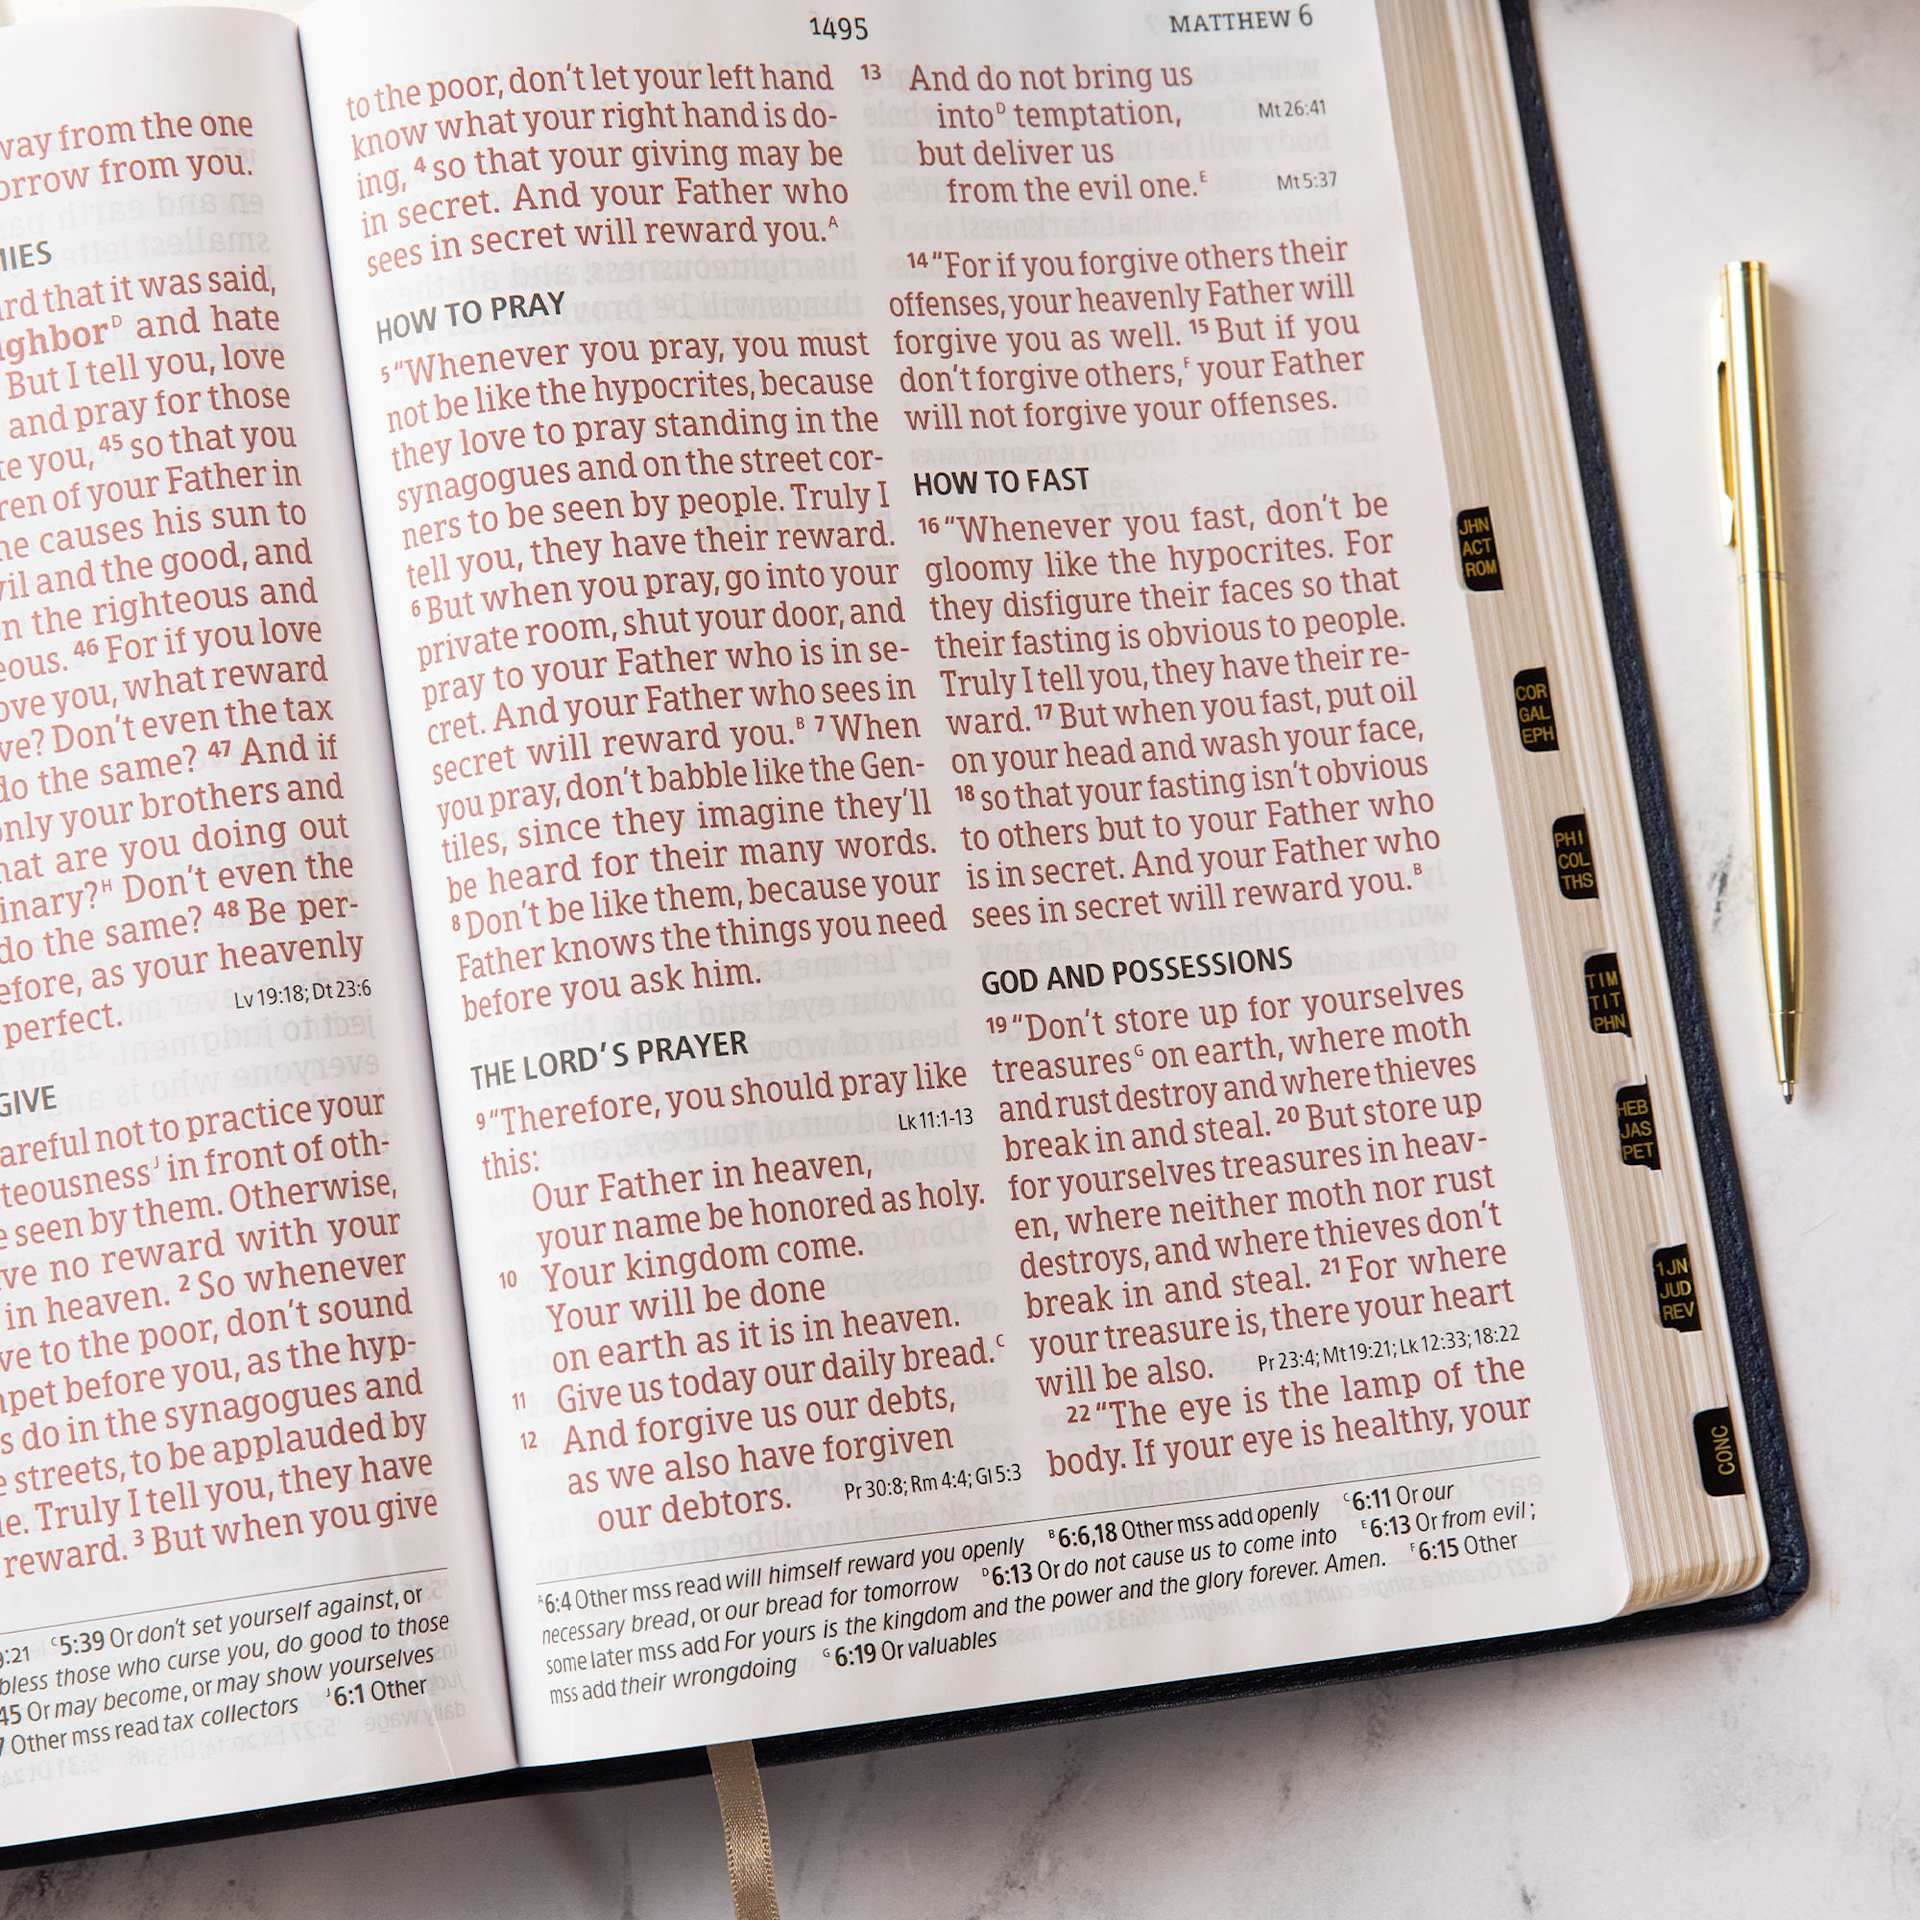 way from the one
orrow from you.
MIES
ard that it was said,
ighborᴰ and hate
But I tell you, love
and pray for those
te you, 45 so that you
ren of your Father in
he causes his sun to
vil and the good, and
n the righteous and
eous. 46 For if you love
ove you, what reward
ve? Don't even the tax
do the same? 47 And if
only your brothers and
hat are you doing out
inary?ᴴ Don't even the
do the same? 48 Be per-
efore, as your heavenly
perfect. Lv 19:18; Dt 23:6
GIVE
areful not to practice your
teousnessᴶ in front of oth-
e seen by them. Otherwise,
ve no reward with your
in heaven. 2 So whenever
ve to the poor, don't sound
mpet before you, as the hyp-
s do in the synagogues and
e streets, to be applauded by
le. Truly I tell you, they have
reward. 3 But when you give
9:21 ᶜ5:39 Or don't set yourself against, or
bless those who curse you, do good to those
45 Or may become, or may show yourselves
7 Other mss read tax collectors ᴶ6:1 Other
1495
MATTHEW 6
to the poor, don't let your left hand
know what your right hand is do-
ing, 4 so that your giving may be
in secret. And your Father who
sees in secret will reward you.ᴬ
HOW TO PRAY
5 "Whenever you pray, you must
not be like the hypocrites, because
they love to pray standing in the
synagogues and on the street cor-
ners to be seen by people. Truly I
tell you, they have their reward.
6 But when you pray, go into your
private room, shut your door, and
pray to your Father who is in se-
cret. And your Father who sees in
secret will reward you.ᴮ 7 When
you pray, don't babble like the Gen-
tiles, since they imagine they'll
be heard for their many words.
8 Don't be like them, because your
Father knows the things you need
before you ask him.
THE LORD'S PRAYER
9 "Therefore, you should pray like
this: Lk 11:1-13
Our Father in heaven,
your name be honored as holy.
10 Your kingdom come.
Your will be done
on earth as it is in heaven.
11 Give us today our daily bread.ᶜ
12 And forgive us our debts,
as we also have forgiven
our debtors. Pr 30:8; Rm 4:4; Gl 5:3
13 And do not bring us
intoᴰ temptation, Mt 26:41
but deliver us
from the evil one.ᴱ Mt 5:37
14 "For if you forgive others their
offenses, your heavenly Father will
forgive you as well. 15 But if you
don't forgive others,ꟳ your Father
will not forgive your offenses.
HOW TO FAST
16 "Whenever you fast, don't be
gloomy like the hypocrites. For
they disfigure their faces so that
their fasting is obvious to people.
Truly I tell you, they have their re-
ward. 17 But when you fast, put oil
on your head and wash your face,
18 so that your fasting isn't obvious
to others but to your Father who
is in secret. And your Father who
sees in secret will reward you.ᴮ
GOD AND POSSESSIONS
19 "Don't store up for yourselves
treasuresᴳ on earth, where moth
and rust destroy and where thieves
break in and steal. 20 But store up
for yourselves treasures in heav-
en, where neither moth nor rust
destroys, and where thieves don't
break in and steal. 21 For where
your treasure is, there your heart
will be also. Pr 23:4; Mt 19:21; Lk 12:33; 18:22
22 "The eye is the lamp of the
body. If your eye is healthy, your
ᴬ6:4 Other mss read will himself reward you openly ᴮ6:6,18 Other mss add openly ᶜ6:11 Or our
necessary bread, or our bread for tomorrow ᴰ6:13 Or do not cause us to come into ᴱ6:13 Or from evil;
some later mss add For yours is the kingdom and the power and the glory forever. Amen. ꟳ6:15 Other
mss add their wrongdoing ᴳ6:19 Or valuables
JHN
ACT
ROM
COR
GAL
EPH
PHI
COL
THS
TIM
TIT
PHN
HEB
JAS
PET
1JN
JUD
REV
CONC